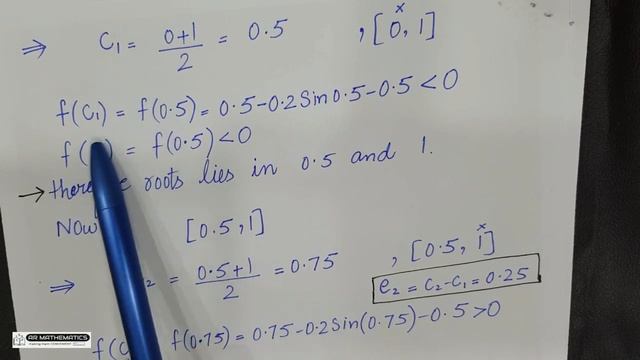 ⇒ C₁ = (0+1)/2 = 0.5 , [0, 1] x
f(C₁) = f(0.5) = 0.5-0.2Sin0.5-0.5 < 0
f( ) = f(0.5) < 0
→ roots lies in 0.5 and 1.
Now [0.5, 1]
⇒ ₂ = (0.5+1)/2 = 0.75 , [0.5, 1] x
e₂ = C₂-C₁ = 0.25
f(C f(0.75) = 0.75-0.2Sin(0.75)-0.5 > 0
AR MATHEMATICS